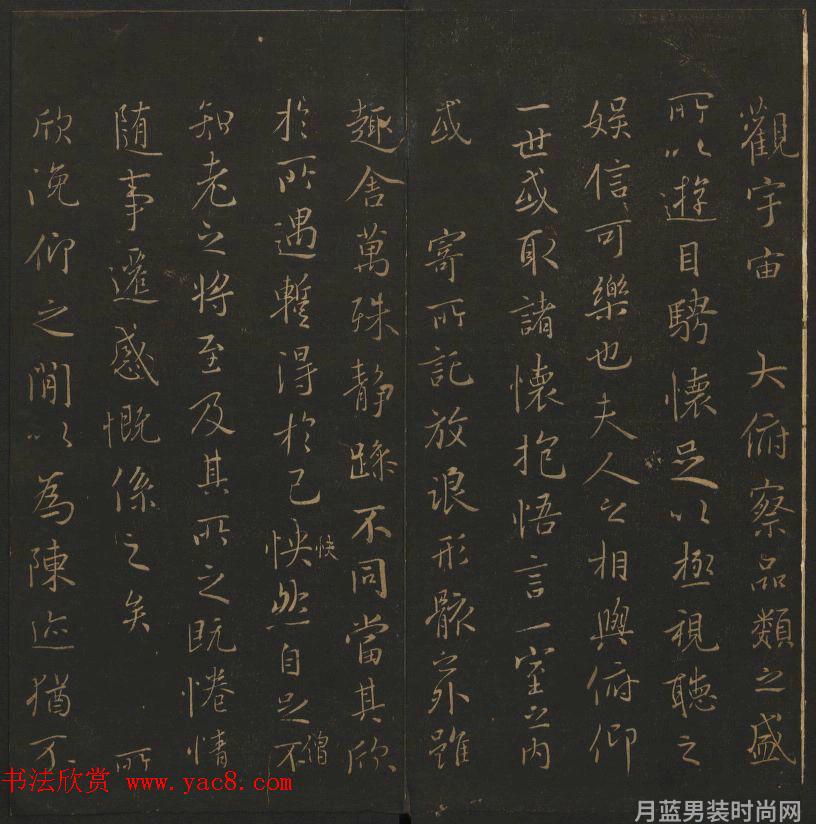 觀宇宙 大俯察品類之盛
所以遊目騁懷足以極視聽之
娛信可樂也夫人之相與俯仰
一世或取諸懷抱悟言一室之內
或 寄所託放浪形骸之外雖
趣舍萬殊靜躁不同當其欣
於所遇暫得於己怏然自足不
快
僧
知老之將至及其所之既惓情
隨事遷感慨係之矣 所
欣俛仰之閒以為陳迹猶不
书法欣赏 www.yac8.com
月蓝男装时尚网